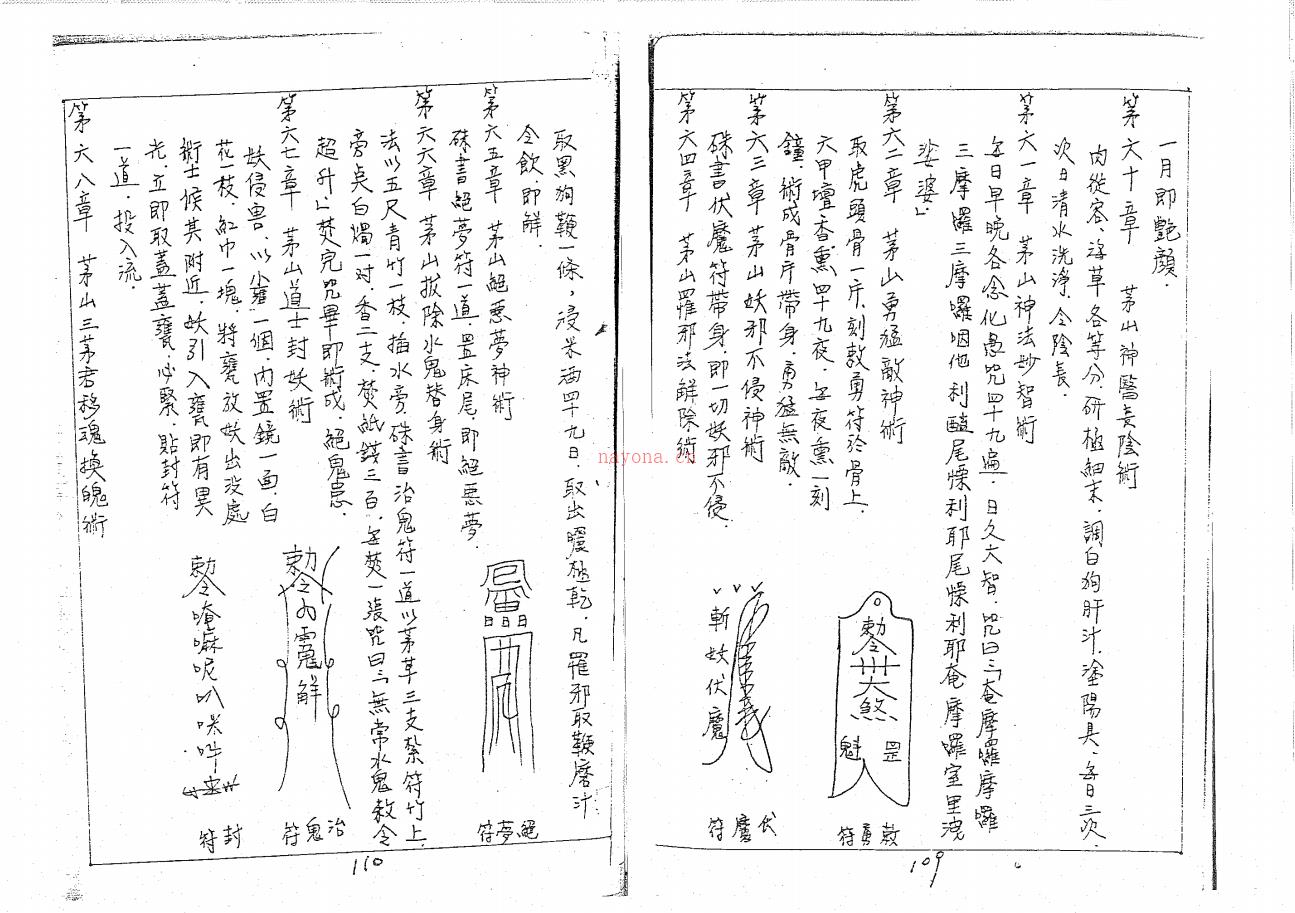 一月即艷顏.
第六十章　茅山神醫長陰術
肉從容、海草各等分.研極細末.調白狗肝汁.塗陽具.每日三次.
次日清水洗淨.令陰長.
第六一章　茅山神法妙智術
每日早晚各念化愚咒四十九遍.日久大智.咒曰:「奄摩囉摩囉
三摩囉三摩囉咽他利醯尾㗚利耶尾㗚利耶奄摩囉室里洩
娑婆」
第六二章　茅山勇猛敵神術
取虎頭骨一片.刻敕勇符於骨上.
六甲壇香熏四十九夜.每夜熏一刻
鐘.術成骨片帶身.勇猛無敵.
第六三章　茅山妖邪不侵神術
硃書伏魔符帶身.即一切妖邪不侵.
第六四章　茅山罹邪法解除術
敕令
煞
魁
罡
敕勇符
斬妖伏魔
伏魔符
109
取黑狗鞭一條,浸米酒四十九日.取出曬極乾.凡罹邪取鞭磨汁
令飲.即解.
第六五章　茅山絕惡夢神術
硃書絕夢符一道.置床尾.即絕惡夢.
第六六章　茅山拔除水鬼替身術
法以五尺青竹一枝.插水旁.硃書治鬼符一道以茅草三支紮符竹上.
旁点白燭一对.香二支.焚紙錢三百.每焚一張咒曰:「無常水鬼敕令
超升」焚完咒畢即術成.絕鬼崇.
第六七章　茅山道士封妖術
妖侵害.以小甕一個.內置鏡一面.白
花一枝.紅巾一塊.將甕放妖出没處
術士候其附近.妖引入甕即有異
光.立即取蓋蓋甕.必緊.貼封符
一道.投入流.
第六八章　茅山三茅君移魂換魄術
絕夢符
敕令
解
治鬼符
敕令唵嘛呢叭咪吽
封符
110
nayona.cn